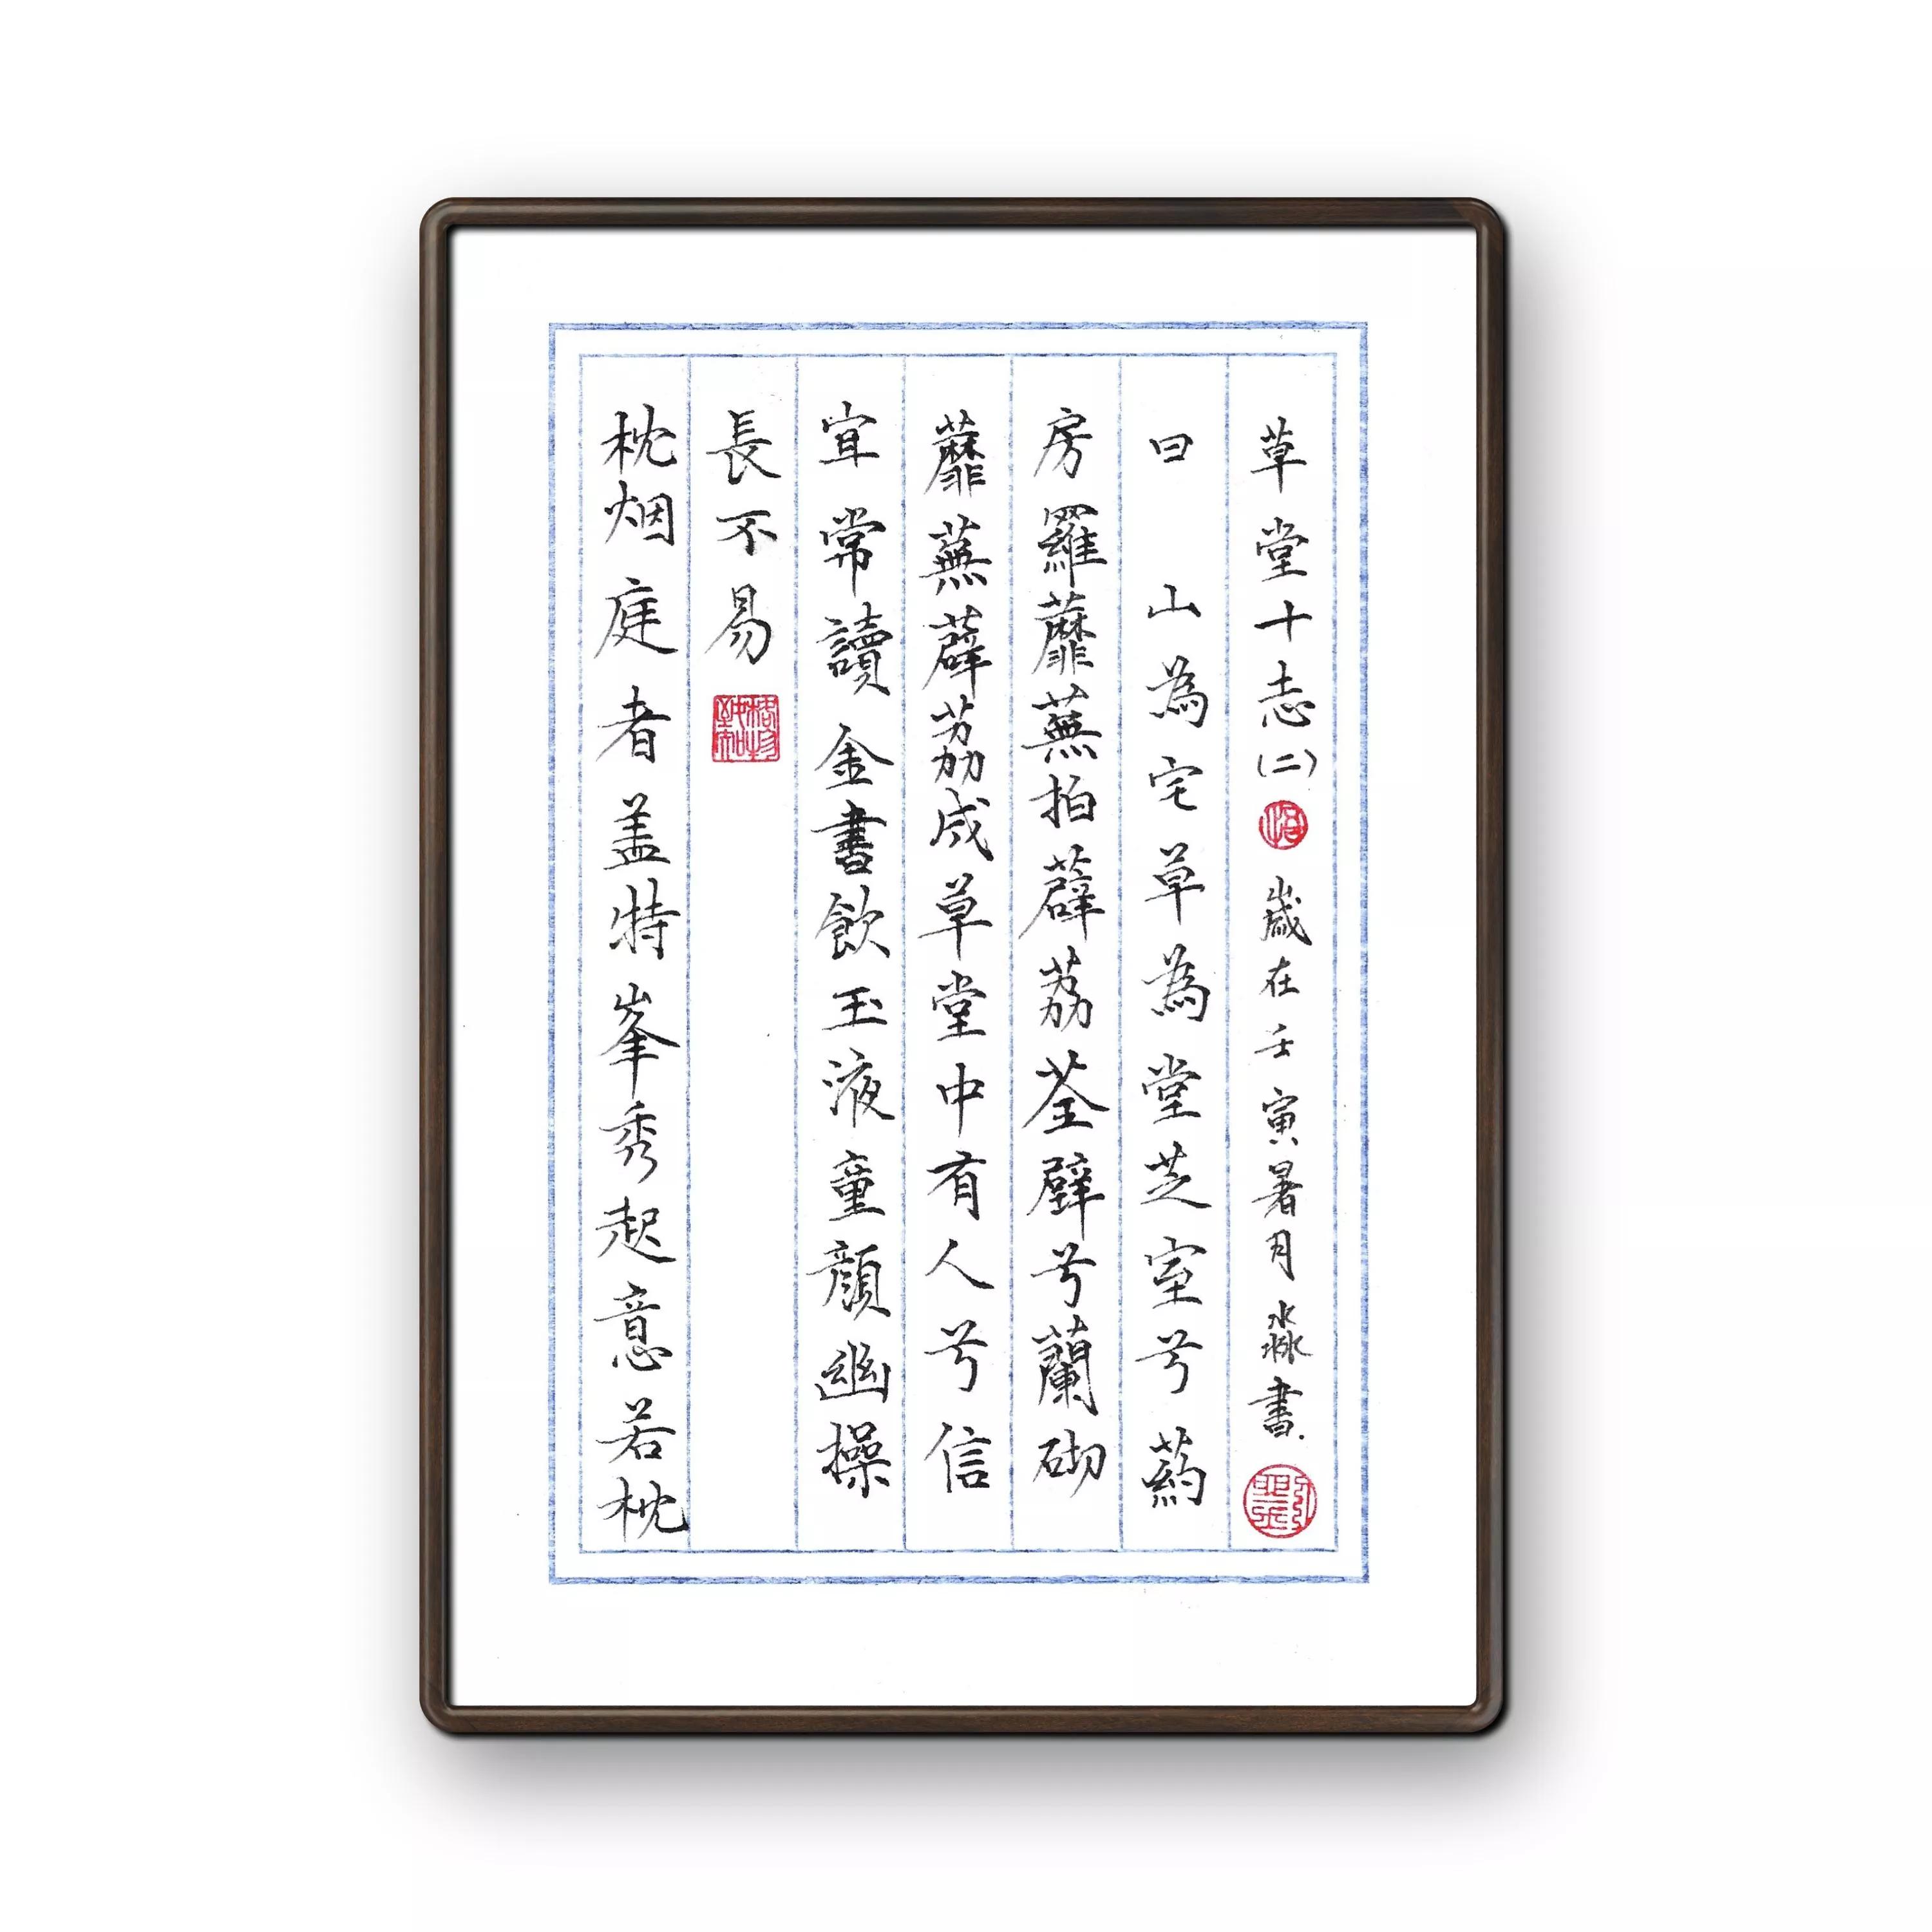 草堂十志(二)歲在壬寅暑月淼書.
曰 山為宅草為堂芝室兮葯
房羅蘼蕪拍薜荔荃壁兮蘭砌
蘼蕪薜荔成草堂中有人兮信
宜常讀金書飲玉液童顏幽操
長不易
格物致知
枕烟庭者盖特峯秀起意若枕